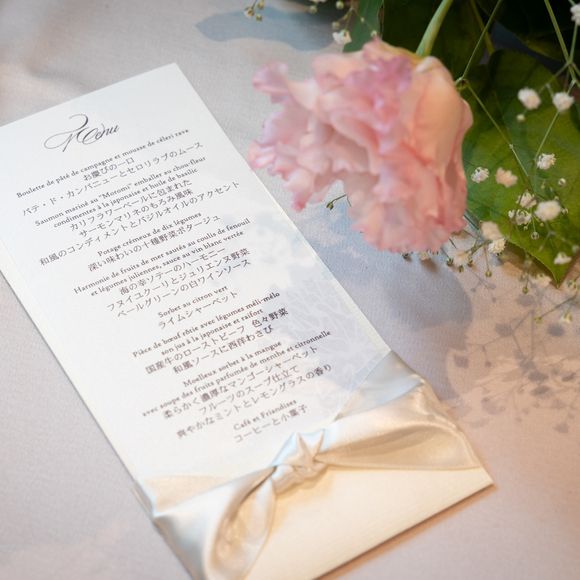 Menu
Boulette de pâté de campagne et mousse de céleri rave
お慶びの一口
パテ・ド・カンパニューとセロリラブのムース
Saumon mariné au "Moromi" emballer au chou-fleur
condimentes à la japonaise et huile de basilic
カリフラワーベールに包まれた
サーモンマリネのもろみ風味
和風のコンディメントとバジルオイルのアクセント
Potage crémeux de dix légumes
深い味わいの十種野菜ポタージュ
Harmonie de fruits de mer sautés au coulis de fenouil
et légumes juliennes, sauce au vin blanc vertée
海の幸ソテーのハーモニー
フヌイユクーリとジュリエンヌ野菜
ベールグリーンの白ワインソース
Sorbet au citron vert
ライムシャーベット
Pièce de bœuf rôtie avec légumes méli-mélo
son jus à la japonaise et raifort
国産牛のローストビーフ 色々野菜
和風ソースに西洋わさび
Moelleux sorbet à la mangue
avec soupe des fruits parfumée de menthe et citronnelle
柔らかく濃厚なマンゴーシャーベット
フルーツのスープ仕立て
爽やかなミントとレモングラスの香り
Café et Friandises
コーヒーと小菓子